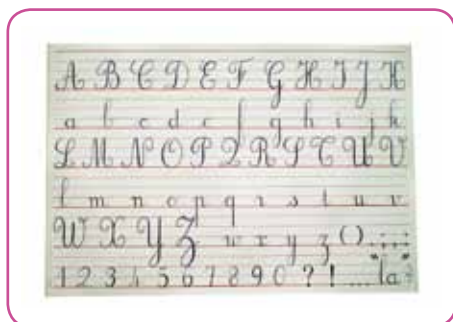 A B C D E F G H I J K
a b c d e f g h i j k
L M N O P Q R S T U V
l m n o p q r s t u v
W X Y Z w x y z () . ; , :
1 2 3 4 5 6 7 8 9 0 ? ! ... "la"